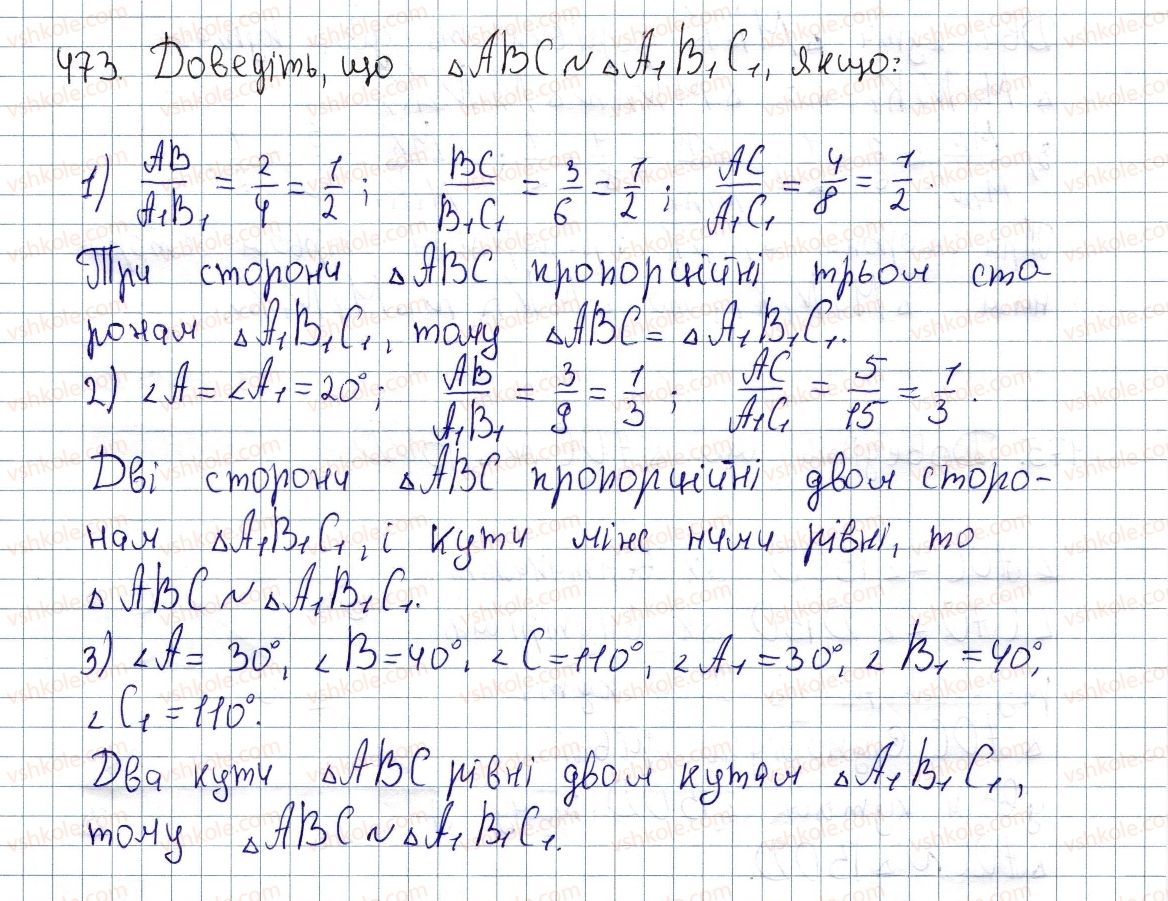 473. Доведіть, що △ABC ~ △A₁B₁C₁, якщо:
1) AB/A₁B₁ = 2/4 = 1/2; BC/B₁C₁ = 3/6 = 1/2; AC/A₁C₁ = 4/8 = 1/2.
Три сторони △ABC пропорційні трьом сто-
ронам △A₁B₁C₁, тому △ABC = △A₁B₁C₁.
2) ∠A = ∠A₁ = 20°; AB/A₁B₁ = 3/9 = 1/3; AC/A₁C₁ = 5/15 = 1/3.
Дві сторони △ABC пропорційні двом сторо-
нам △A₁B₁C₁, і кути між ними рівні, то
△ABC ~ △A₁B₁C₁.
3) ∠A = 30°, ∠B = 40°, ∠C = 110°, ∠A₁ = 30°, ∠B₁ = 40°,
∠C₁ = 110°.
Два кути △ABC рівні двом кутам △A₁B₁C₁,
тому △ABC ~ △A₁B₁C₁.